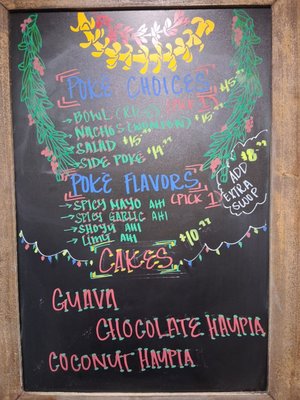 POKÉ CHOICES
(PICK 1)
→ BOWL (RICE) $15
→ NACHOS (WONTON) $15
→ SALAD $15
→ SIDE POKE $14
$8
ADD
EXTRA
SCOOP
POKÉ FLAVORS
→ SPICY MAYO AHI (PICK 1)
→ SPICY GARLIC AHI
→ SHOYU AHI
→ LIMU AHI
CAKES $10
GUAVA
CHOCOLATE HAUPIA
COCONUT HAUPIA